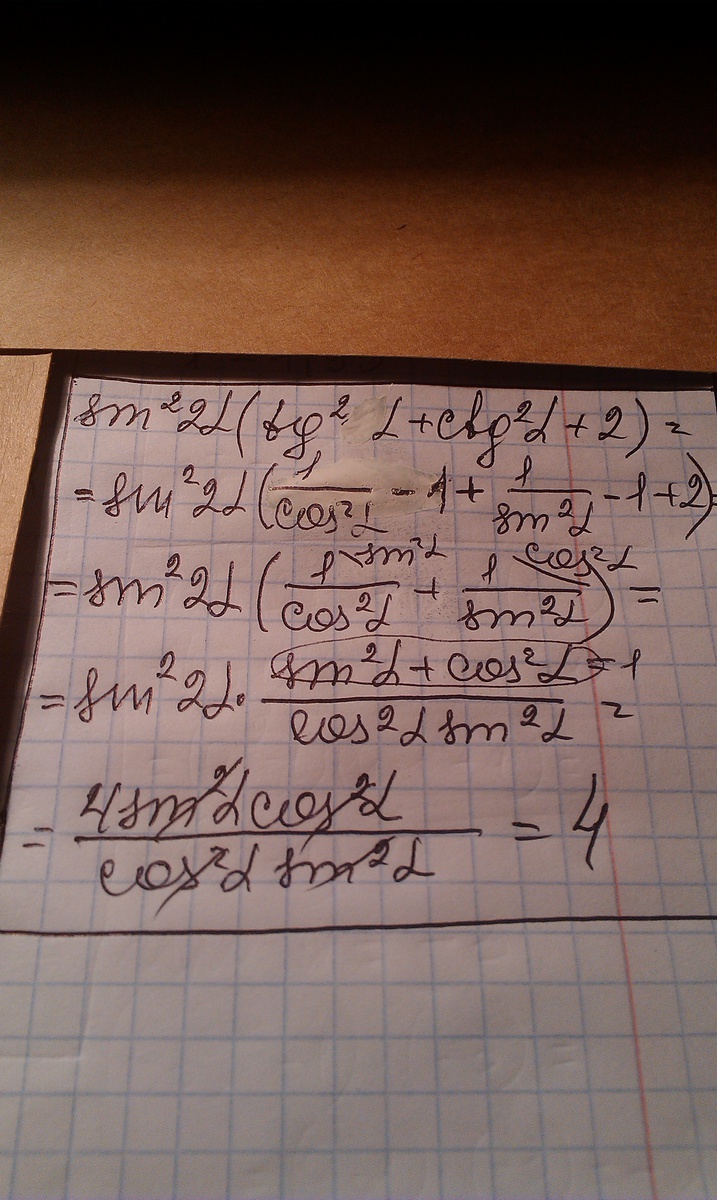 sin²2α(tg²α+ctg²α+2)=
=sin²2α(1/cos²α-1+1/sin²α-1+2)=
=sin²2α(1\sin²α/cos²α+1\cos²α/sin²α)=
=sin²2α·(sin²α+cos²α)=1/cos²α sin²α=
=4sin²α cos²α/cos²α sin²α=4